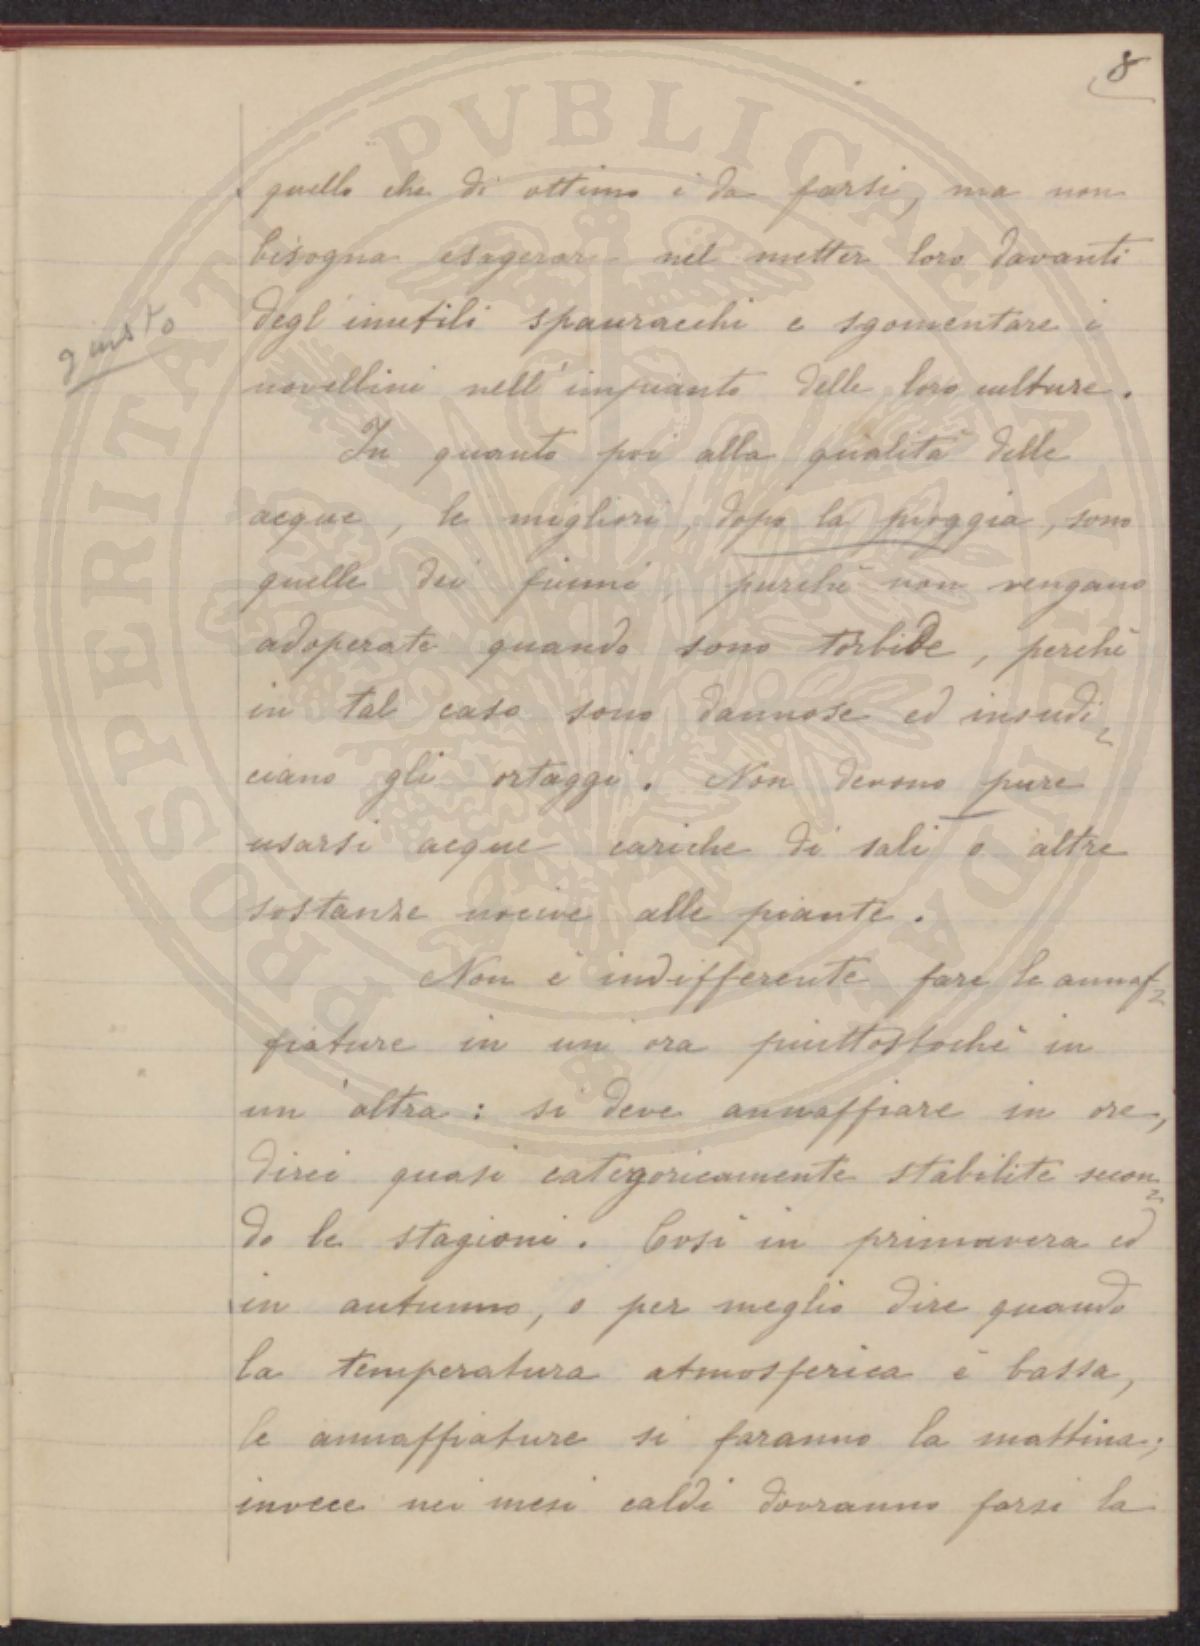 8
quello che di ottimo è da farsi, ma non
bisogna esagerare nel metter loro davanti
degl'inutili spauracchi e sgomentare i
giusto
novellini nell'impianto delle loro culture.
In quanto poi alla qualità delle
acque, le migliori, dopo la pioggia, sono
quelle dei fiumi, purchè non vengano
adoperate quando sono torbide, perchè
in tal caso sono dannose ed insudi=
ciano gli ortaggi. Non devono pure
usarsi acque cariche di sali o altre
sostanze nocive alle piante.
Non è indifferente fare le annaf=
fiature in un'ora piuttostochè in
un'altra: si deve annaffiare in ore,
direi quasi categoricamente stabilite secon=
do le stagioni. Così in primavera ed
in autunno, o per meglio dire quando
la temperatura atmosferica è bassa,
le annaffiature si faranno la mattina;
invece nei mesi caldi dovranno farsi la
PROSPERITATI PVBLICAE